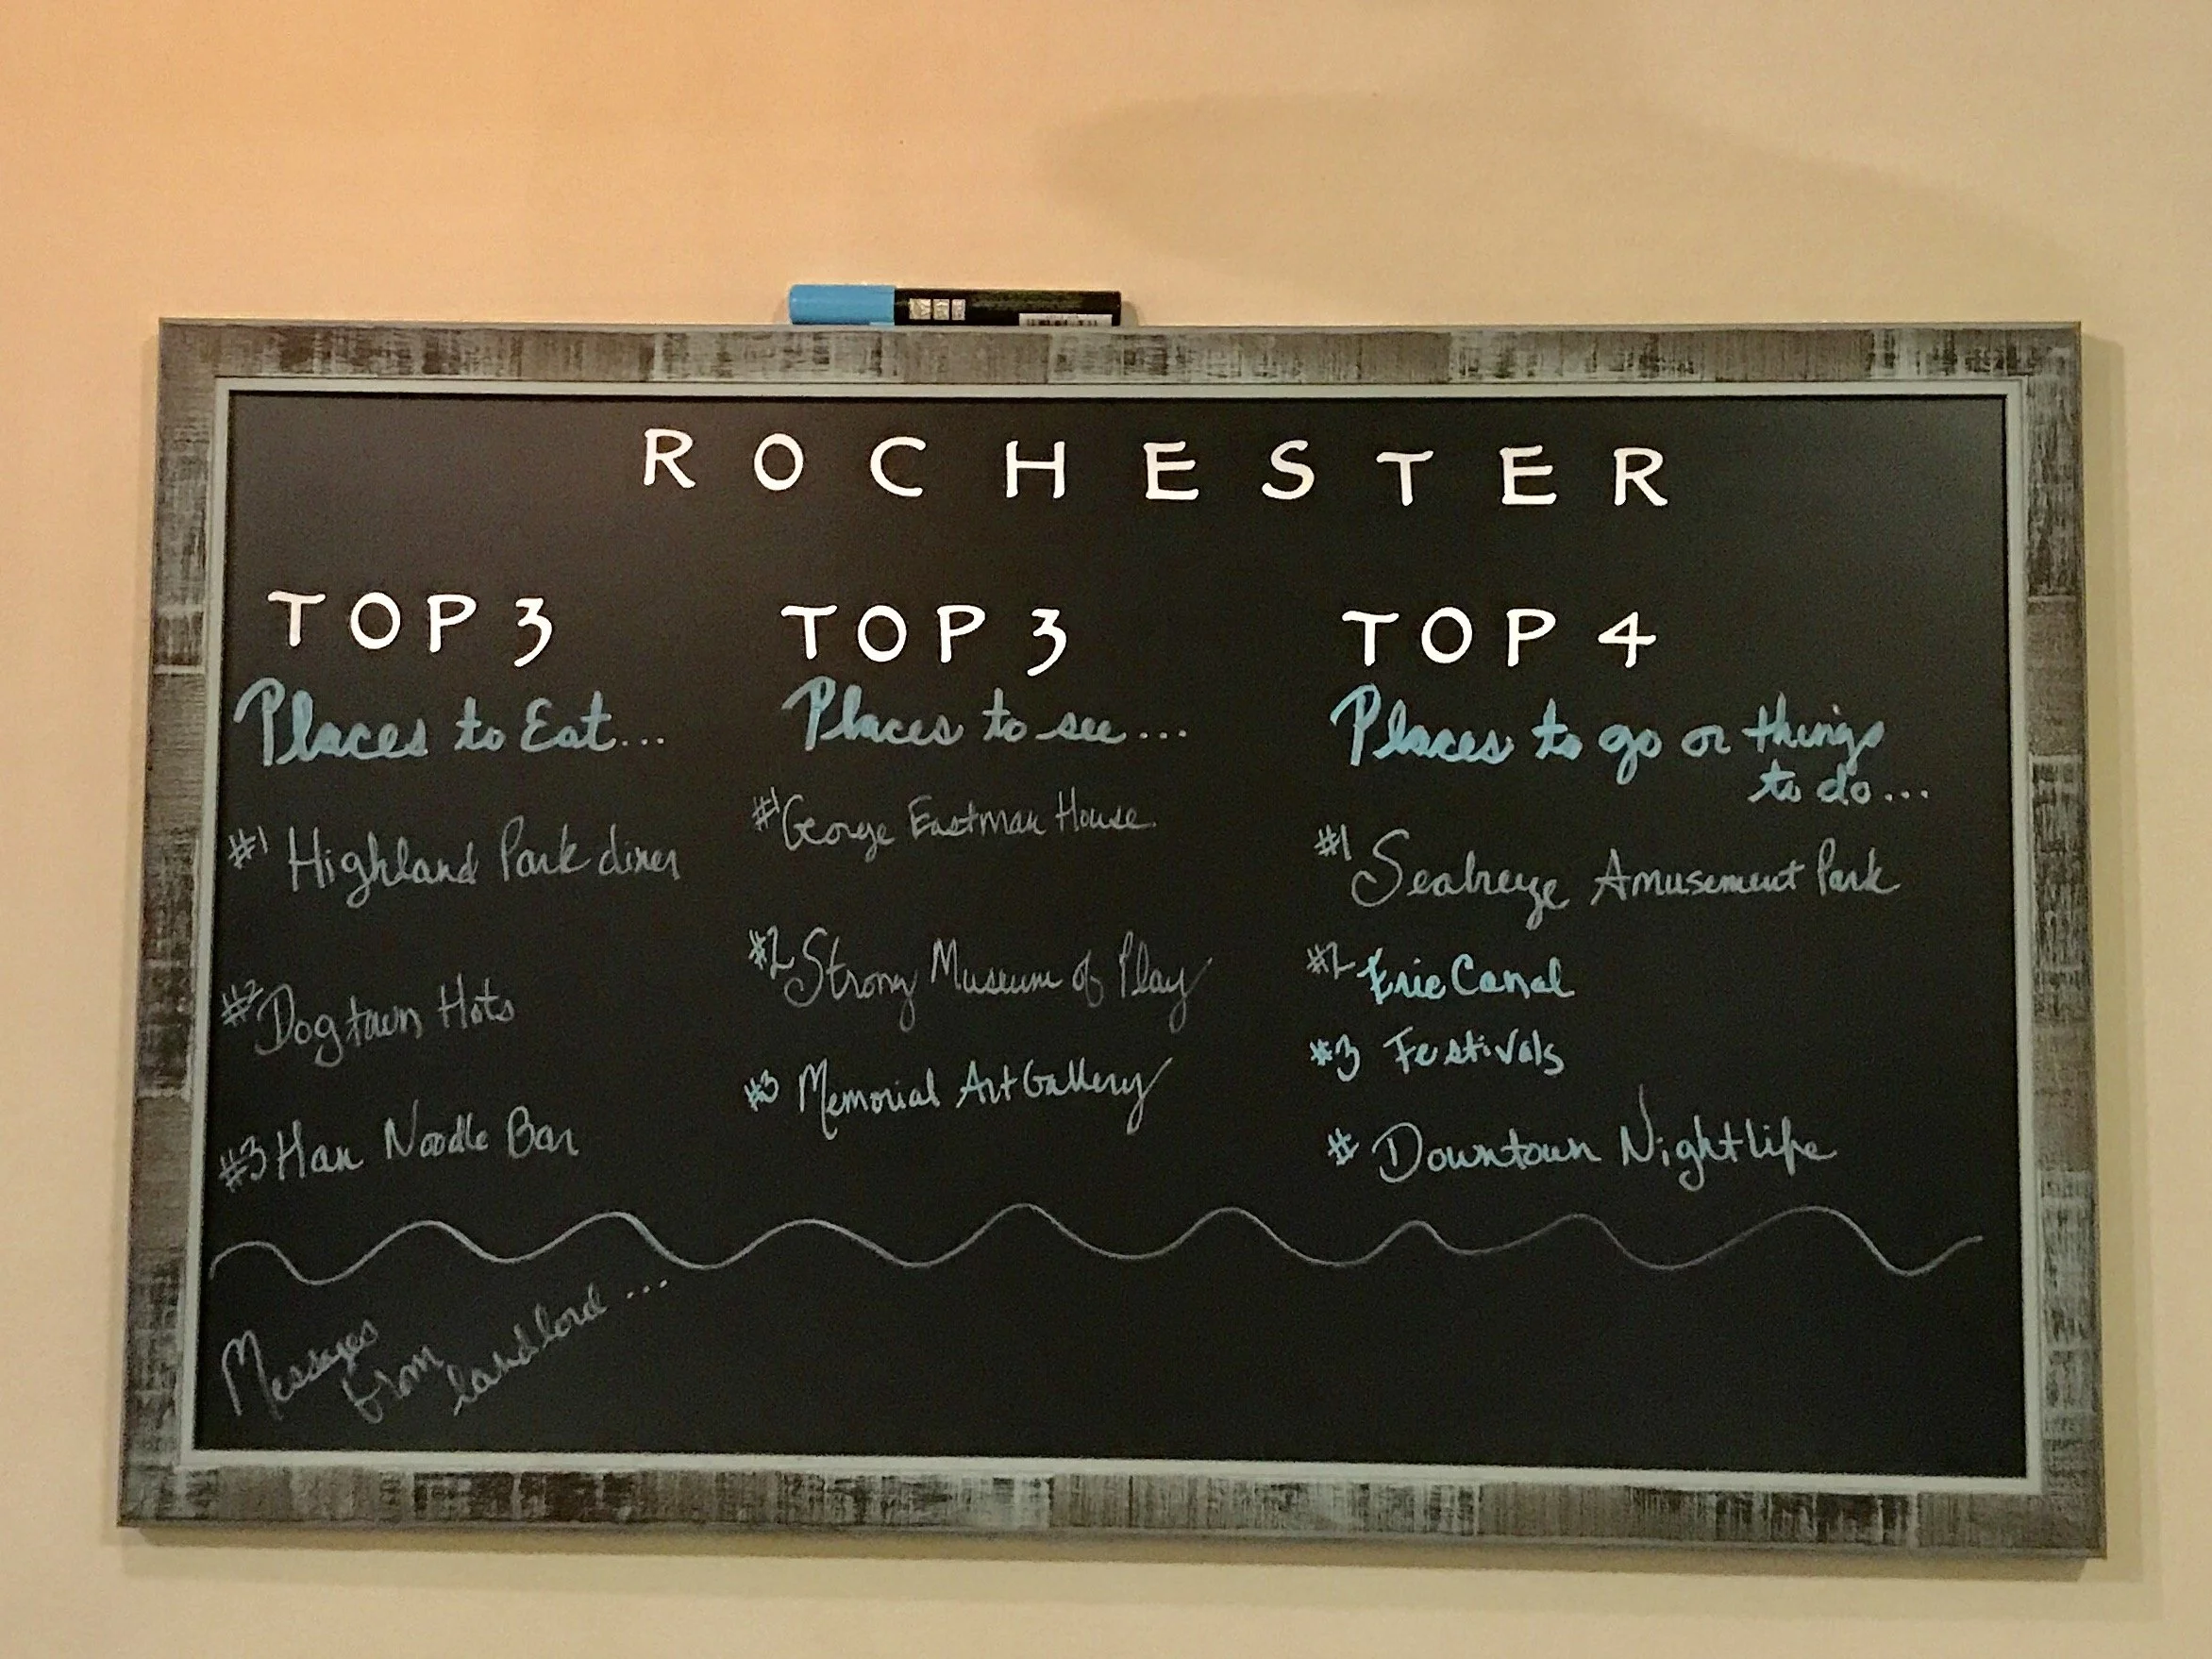 ROCHESTER
TOP 3
Places to Eat...
#1 Highland Park diner
#2 Dogtown Hots
#3 Han Noodle Bar
TOP 3
Places to see...
#1 George Eastman House
#2 Strong Museum of Play
#3 Memorial Art Gallery
TOP 4
Places to go or things
to do...
#1 Seabreeze Amusement Park
#2 Erie Canal
#3 Festivals
# Downtown Nightlife
Messages
from
landlord...